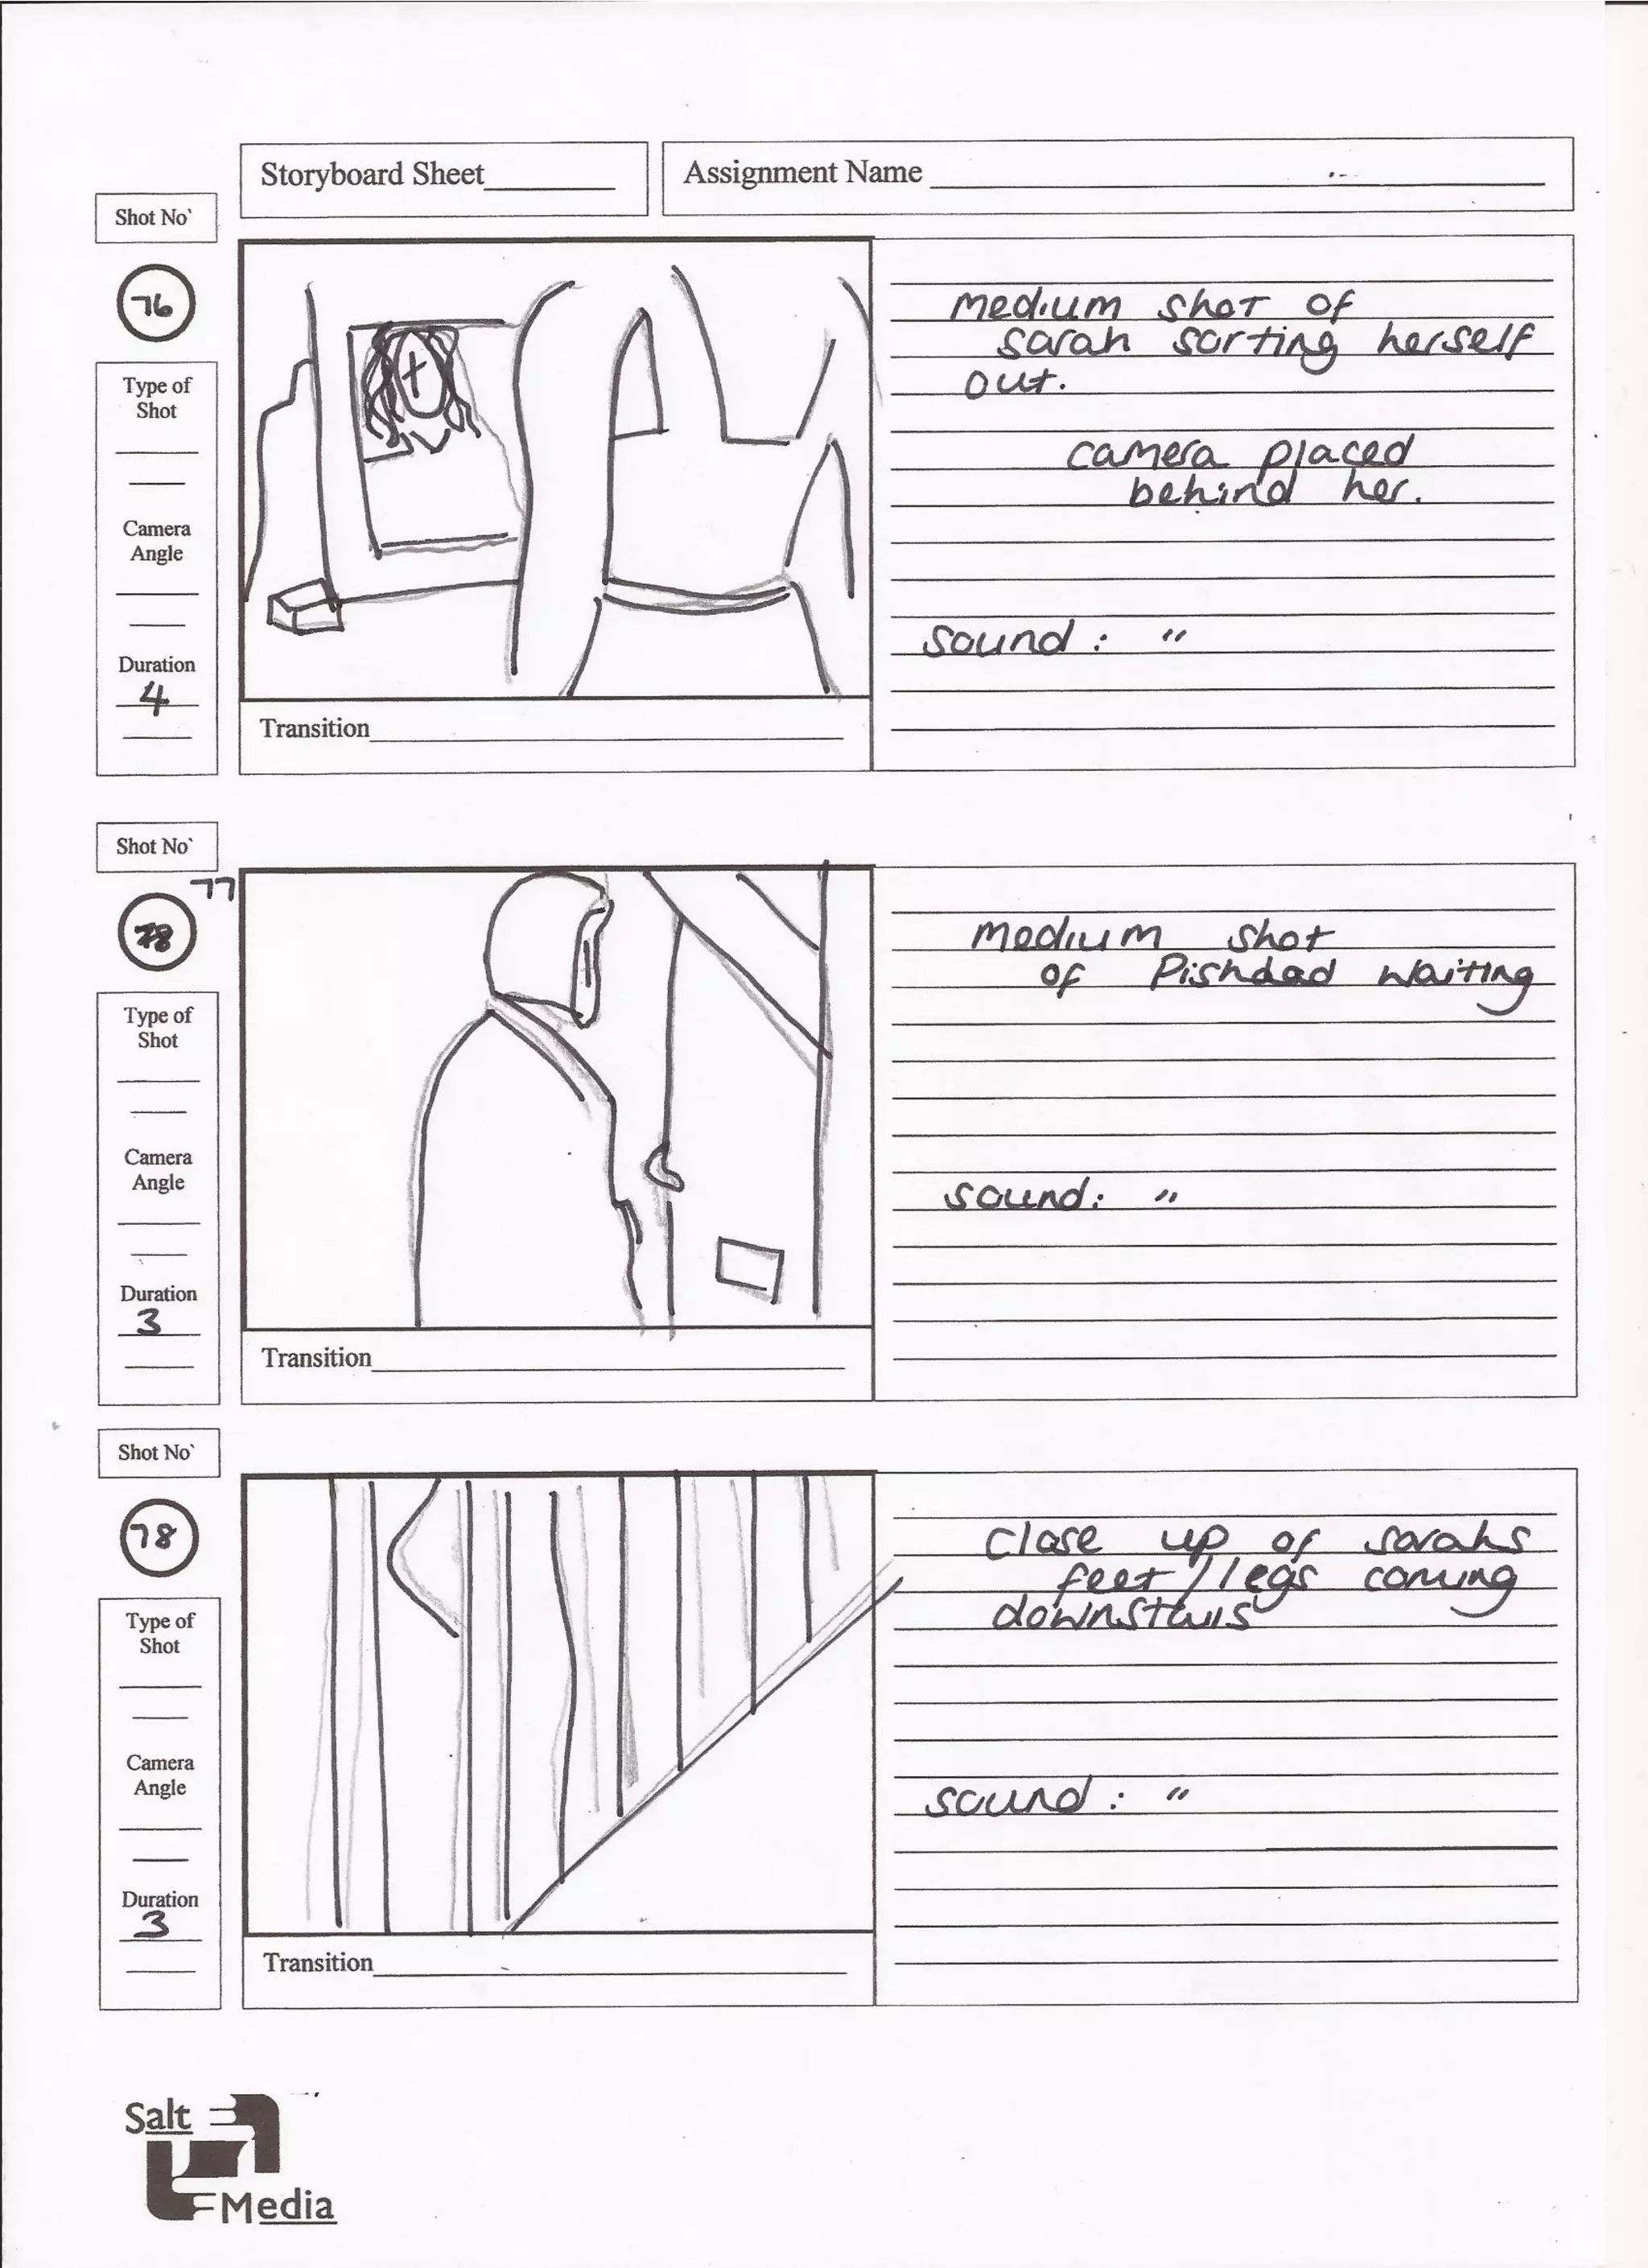 Storyboard Sheet
Assignment Name
Shot No`
76
Type of
Shot
Camera
Angle
Duration
4
Transition
medium shot of
sarah sorting herself
out.
camera placed
behind her.
sound : "
Shot No`
77
78
Type of
Shot
Camera
Angle
Duration
3
Transition
medium shot
of Pishdad waiting
sound: "
Shot No`
78
Type of
Shot
Camera
Angle
Duration
3
Transition
close up of sarahs
feet/legs coming
downstairs
sound : "
Salt
Media